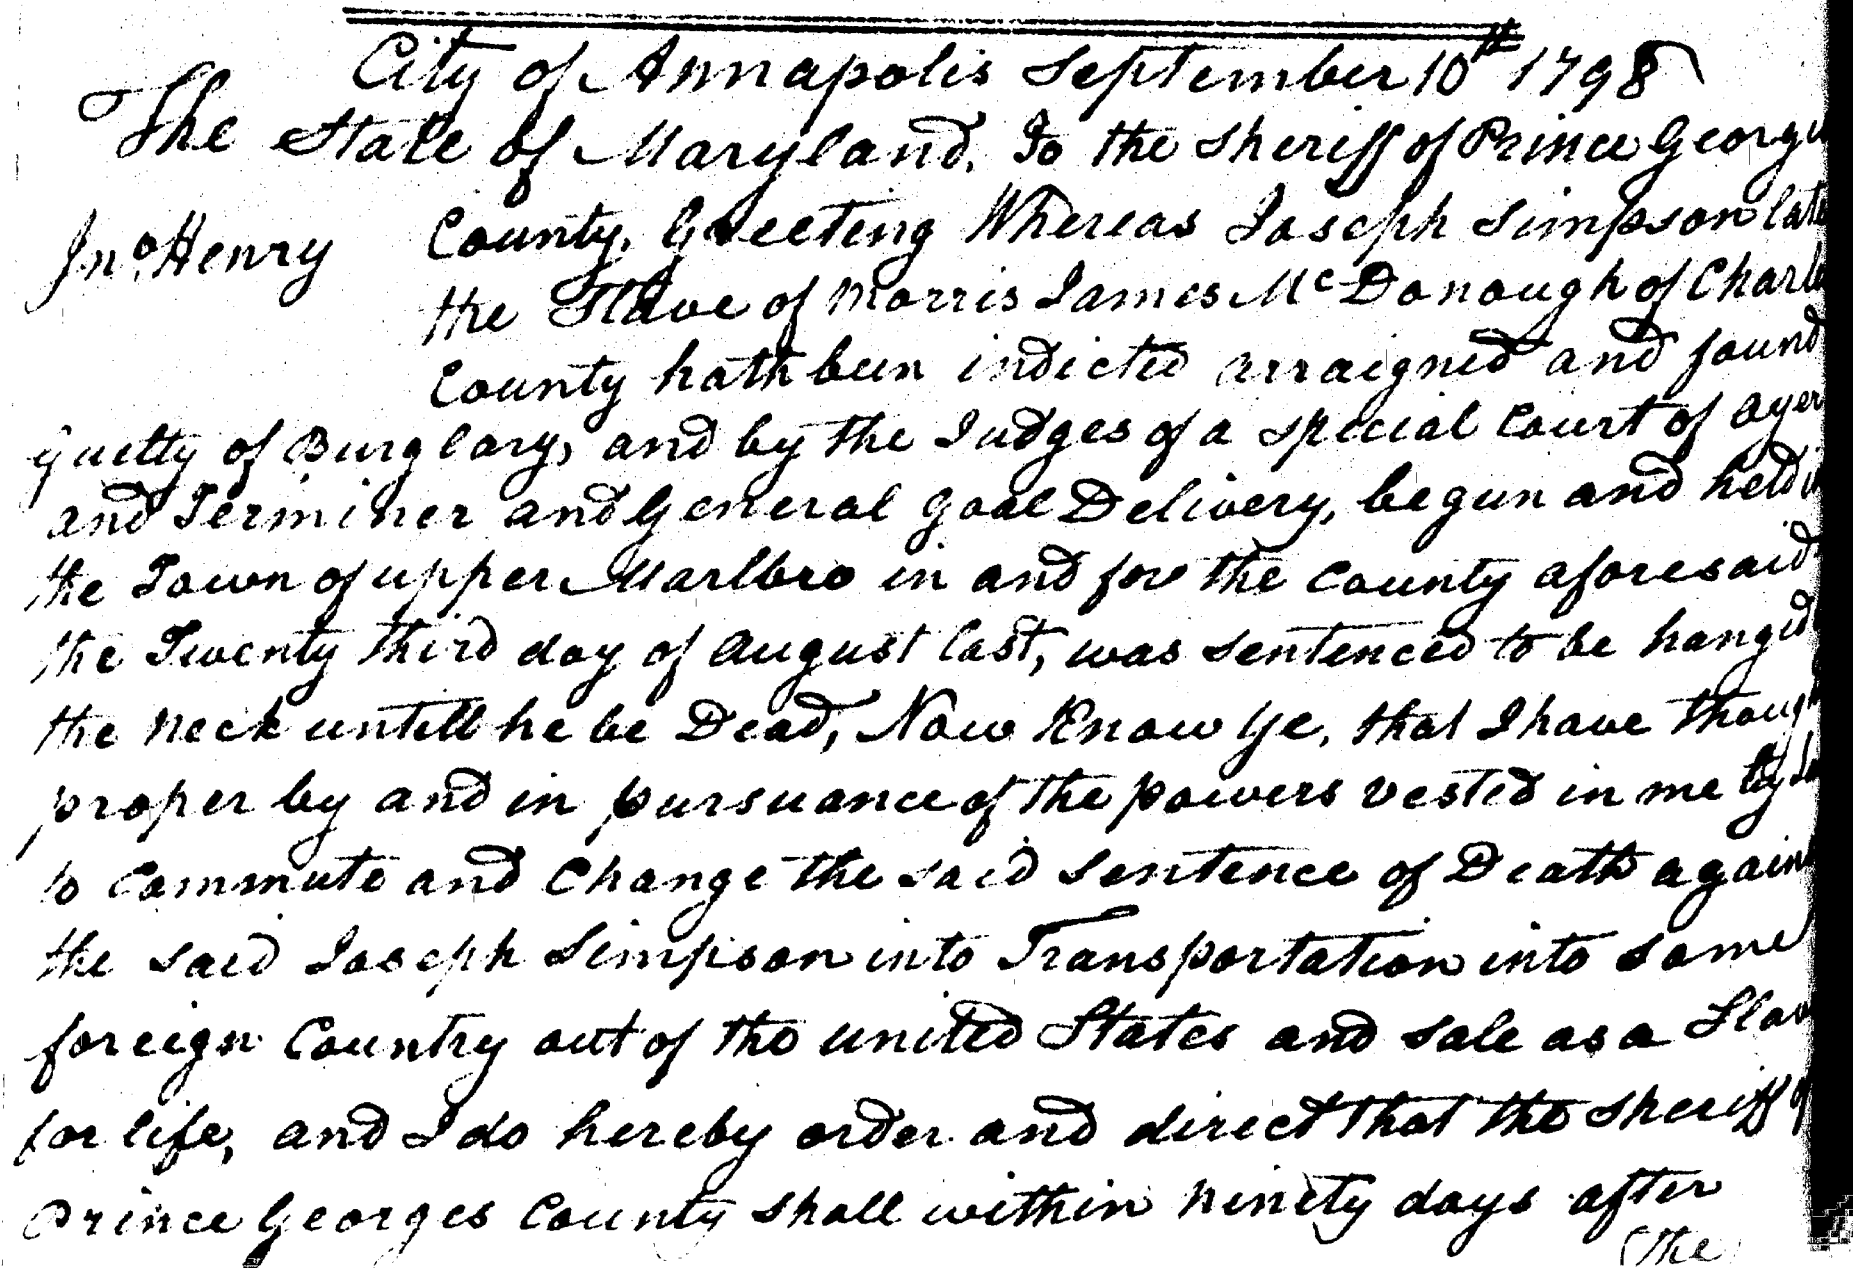 City of Annapolis September 10th 1798
The State of Maryland. To the Sheriff of Prince Georges
Jno. Henry County, Greeting Whereas Joseph Simpson late
the Slave of Morris James McDonough of Charles
County hath been indicted arraigned and found
guilty of Burglary, and by the Judges of a special Court of Oyer
and Terminer and General Goal Delivery, begun and held in
the Town of upper Marlbro in and for the County aforesaid
the Twenty third day of August last, was sentenced to be hanged
the neck untill he be Dead, Now Know Ye, that I have thought
proper by and in pursuance of the powers vested in me by
to Commute and Change the said Sentence of Death against
the said Joseph Simpson into Transportation into some
foreign Country out of the united States and sale as a Slave
for life, and I do hereby order and direct that the Sheriff of
Prince Georges County shall within ninety days after
(the